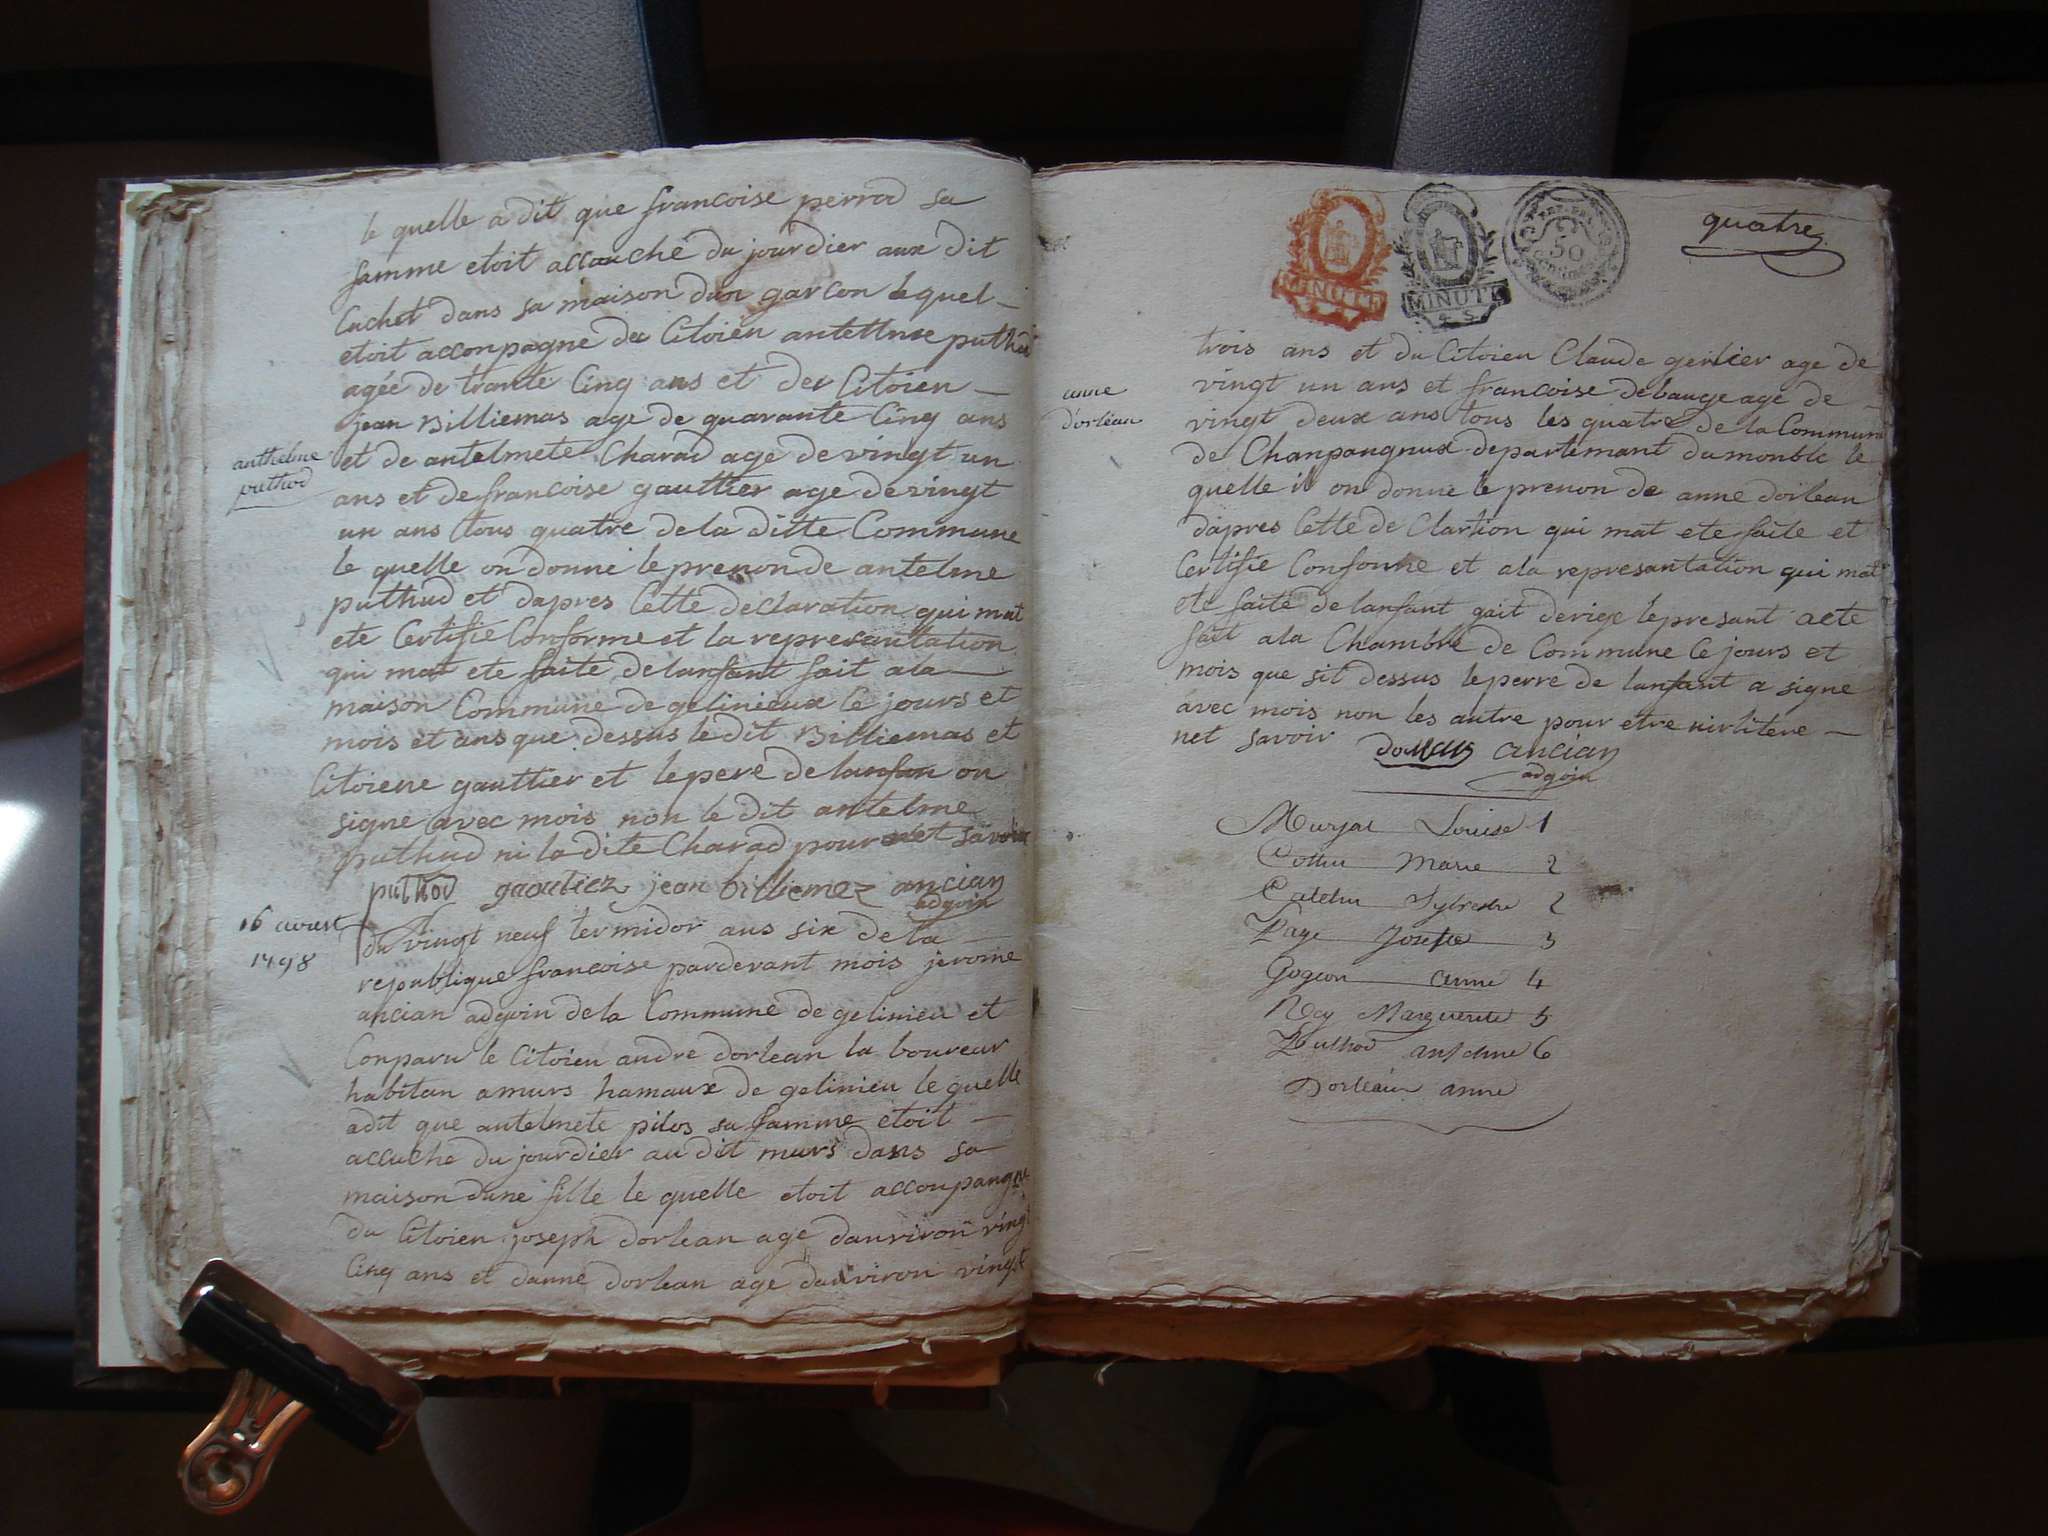 le quelle a dit que francoise perrod sa
famme etoit accouché du jourdier aux dit
Cuchet dans sa maison dun garcon le quel
etoit acconpagne du Citoien antelme puthod
agée de trante Cinq ans et des Citoien
jean Billiemas age de quarante Cinq ans
anthelme
puthod
et de antelmete Charad age de vingt un
ans et de francoise gauttier age de vingt
un ans tous quatre de la ditte Commune
le quelle on donné le prenon de antelme
puthud et dapres Cette declaration qui mat
ete Certifie Conforme et la represantation
qui mat ete faite de lanfant fait a la
maison Commune de gelinieux le jours et
mois et ans que dessus le dit Billiemas et
Citoiene gauttier et le pere de lanfan on
signe avec mois non le dit antelme
puthud ni la dite Charad pour net savoir
puthod gaoutiez jean billiemaz ancian
adgoin
16 aoust
1798
du vingt neuf termidor ans six de la
republique francoise pardevant mois jerome
ancian adgoin de la Commune de gelinieu et
Conparu le Citoien andre dorlean la boureur
habitan a murs hamaux de gelinieu le quelle
adit que antelmete pilos sa famme etoit
accuché du jourdier au dit murs dans sa
maison dune fille le quelle etoit accoupangne
du Citoien joseph dorlean age danviron vingt
Cinq ans et danne dorlean age danviron vingt
quatre
MINUTE
MINUTE
50
centimes
trois ans et du Citoien Claude gerlier age de
vingt un ans et francoise debauge age de
anne
dorléan
vingt deux ans tous les quatre de la Commune
de Chanpangnux departemant du monblc le
quelle il on donne le prenon de anne dorlean
dapres Cette de Clartion qui mat ete faite et
Certifie Conforme et a la represantation qui mat
ete faite de lanfant gait derige le presant acte
fait a la Chambre de Commune Ce jours et
mois que sit dessus le perre de lanfant a signe
avec mois non les autre pour etre nirlitere
net savoir
ancian
adgoin
Murjat Louise 1
Cottin Marie 2
Catelin Sylvestre 2
Page Josepte 3
Gogeon anne 4
Rey Marguerite 5
Puthod antelme 6
Dorleain anne